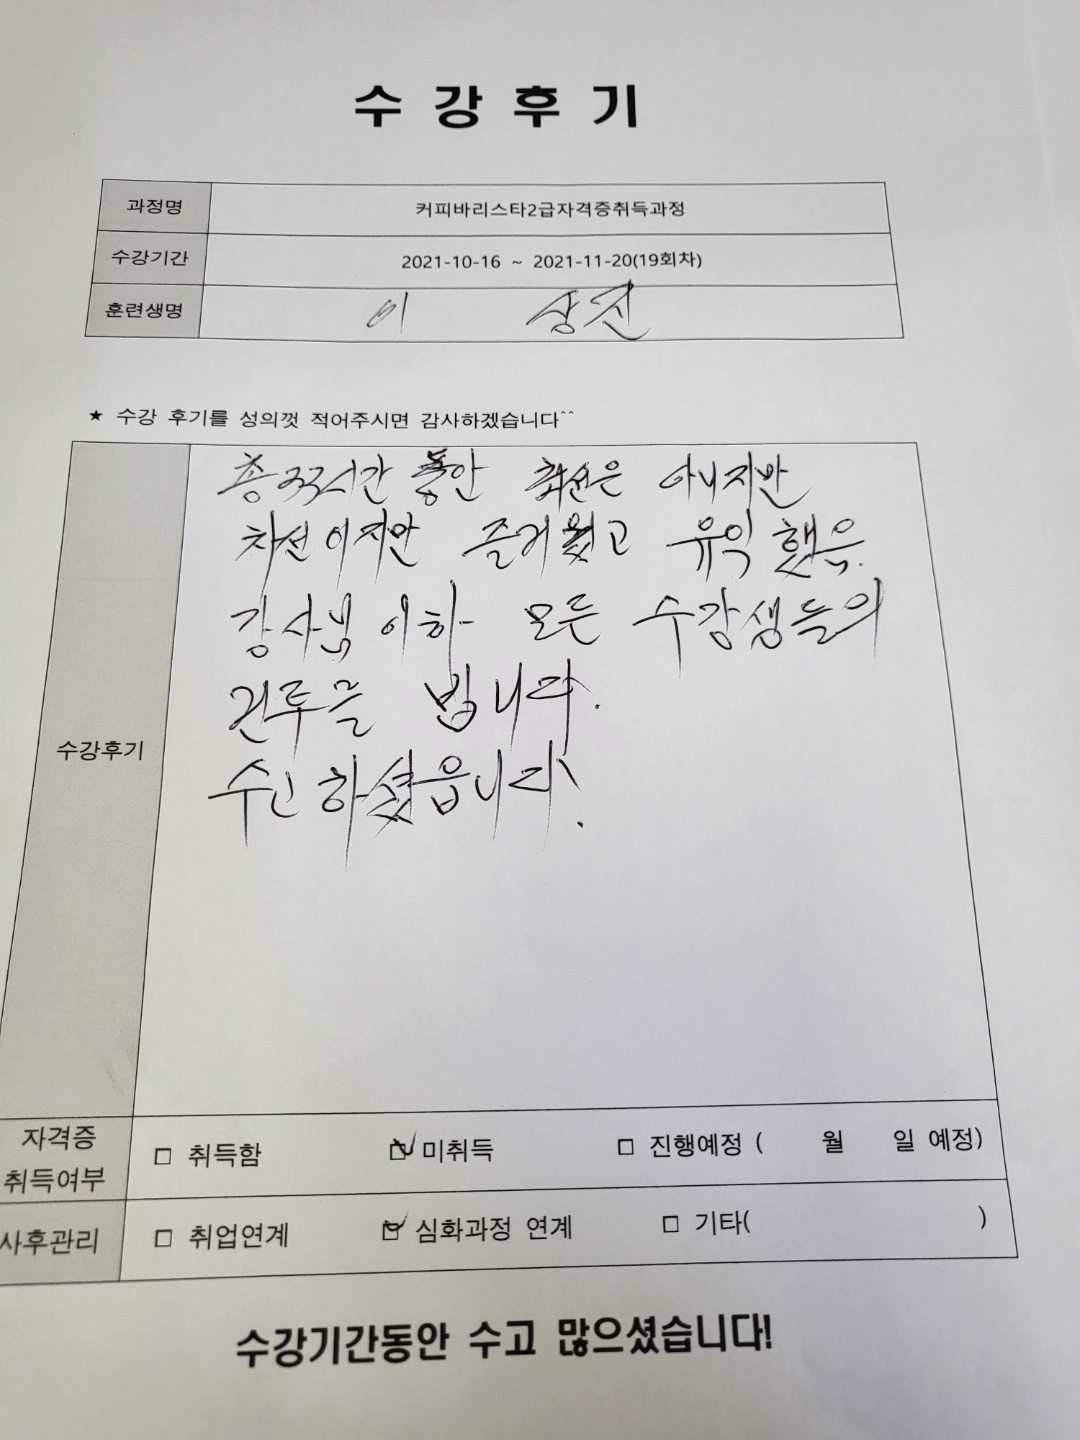 수 강 후 기
과정명 커피바리스타2급자격증취득과정
수강기간 2021-10-16 ~ 2021-11-20(19회차)
훈련생명 이 상진
★ 수강 후기를 성의껏 적어주시면 감사하겠습니다^^
총33시간 동안 최선은 아니지만
차선이지만 즐거웠고 유익했음.
강사님 이하 모든 수강생들의
수강후기
건투를 빕니다.
수고하셨읍니다.
자격증 취득여부 □ 취득함 ☑ 미취득 □ 진행예정 ( 월 일 예정)
사후관리 □ 취업연계 ☑ 심화과정 연계 □ 기타( )
수강기간동안 수고 많으셨습니다!